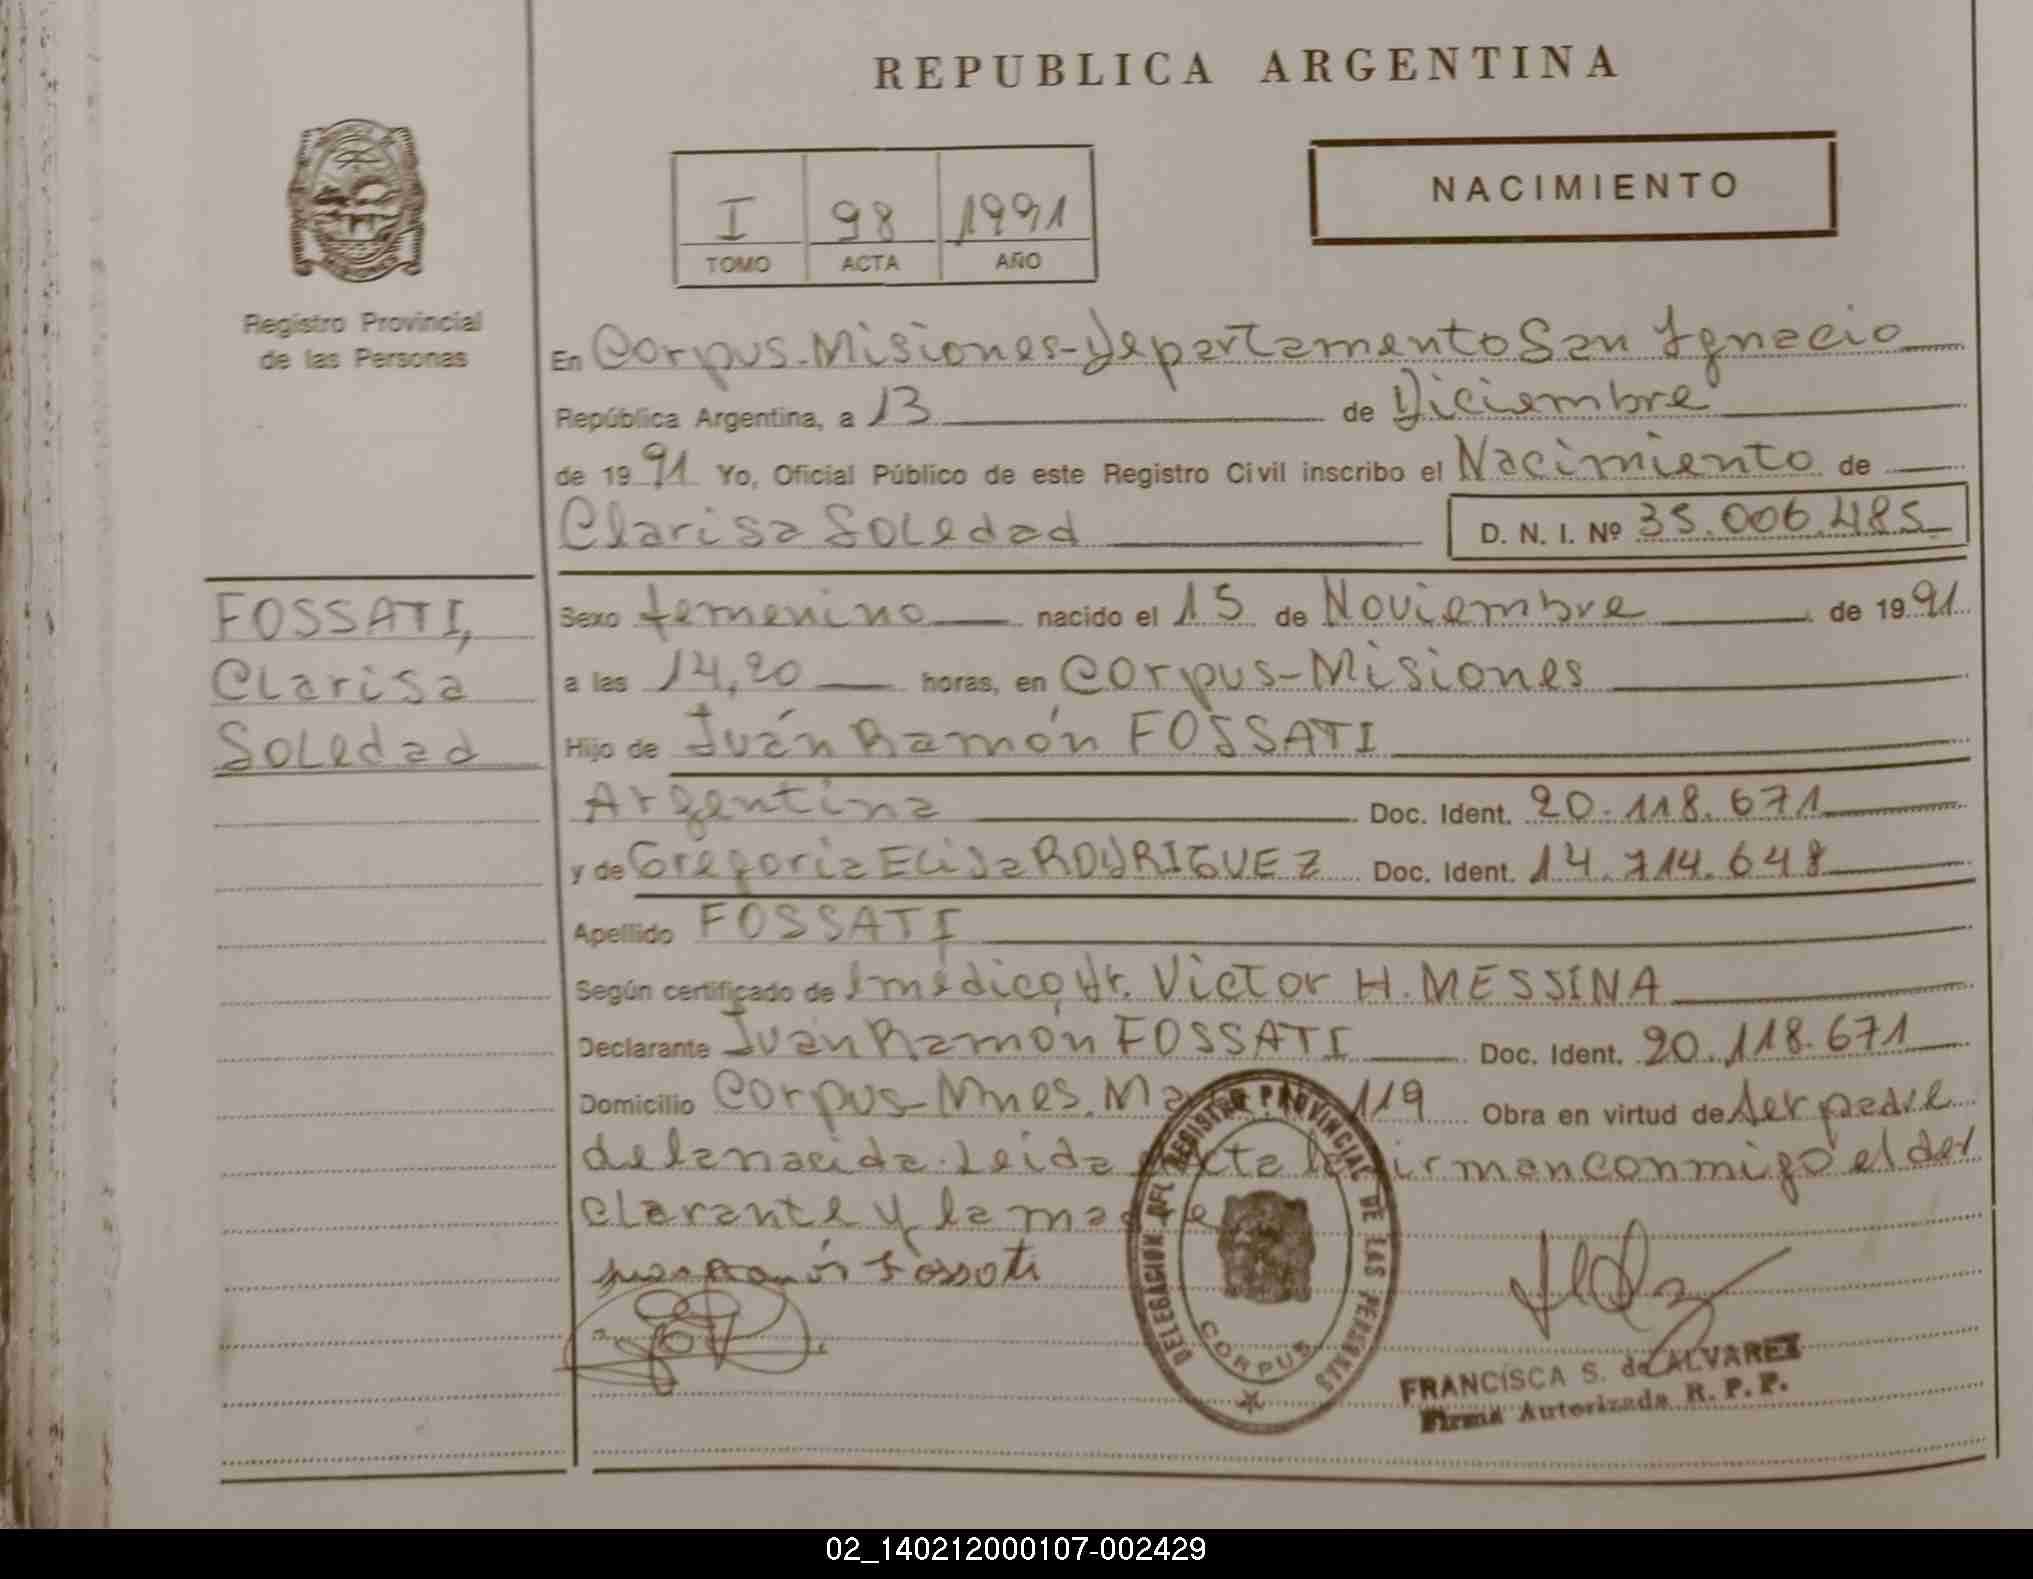 REPUBLICA ARGENTINA
NACIMIENTO
I 98 1991
TOMO ACTA AÑO
Registro Provincial
de las Personas
En Corpus-Misiones-Departamento San Ignacio
República Argentina, a 13 de Diciembre
de 1991 Yo, Oficial Público de este Registro Civil inscribo el Nacimiento de
Clarisa Soledad D. N. I. Nº 35.006.485
FOSSATI,
Clarisa
Soledad
Sexo femenino nacido el 15 de Noviembre de 1991
a las 14,20 horas, en Corpus-Misiones
Hijo de Juán Ramón FOSSATI
Argentina Doc. Ident. 20.118.671
y de Gregoria Elisa RODRIGUEZ Doc. Ident. 14.714.648
Apellido FOSSATI
Según certificado de l médico, Dr. Victor H. MESSINA
Declarante Juán Ramón FOSSATI Doc. Ident. 20.118.671
Domicilio Corpus-Mnes. 119 Obra en virtud de ser padre
de la nacida. Leida acta la firman conmigo el de
clarante y la madre
Juan Ramón Fossati
DELEGACION DEL REGISTRO PROVINCIAL DE LAS PERSONAS
CORPUS
FRANCISCA S. de ALVAREZ
Firma Autorizada R. P. P.
02_140212000107-002429